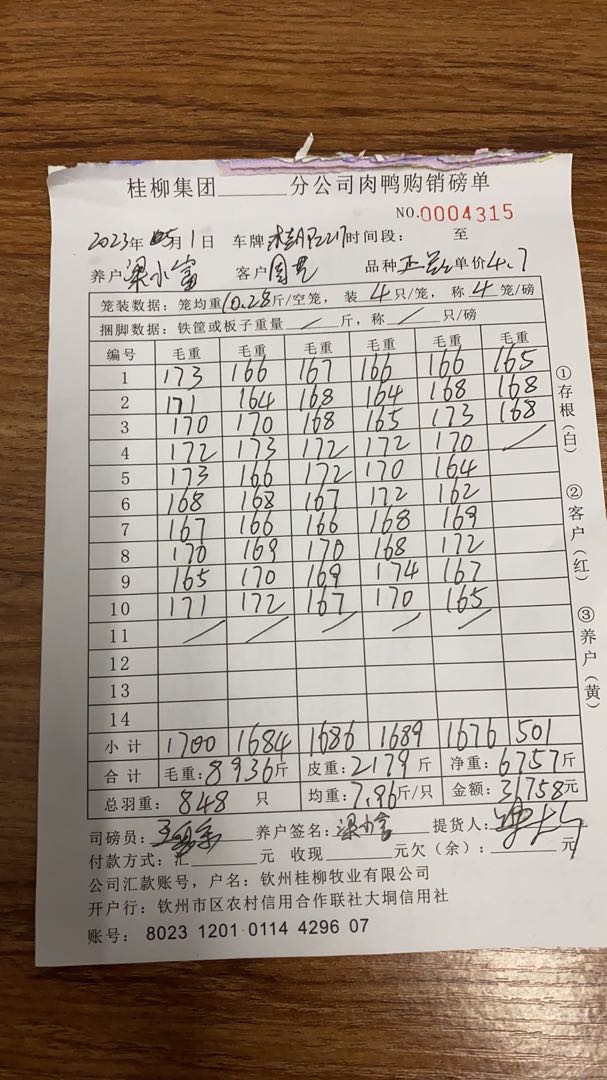 桂柳集团______分公司肉鸭购销磅单
NO.0004315
2023年 5月1日 车牌 217 时间段： 至
养户 梁小富 客户 周 品种 单价4.7
笼装数据：笼均重10.28斤/空笼，装4只/笼，称4笼/磅
捆脚数据：铁筐或板子重量 / 斤，称 / 只/磅
编号 毛重 毛重 毛重 毛重 毛重 毛重
1 173 166 167 166 166 165
2 171 164 168 164 168 168
3 170 170 168 165 173 168
4 172 173 172 172 170 /
5 173 166 172 170 164
6 168 168 167 172 162
7 167 166 166 168 169
8 170 169 170 168 172
9 165 170 169 174 167
10 171 172 167 170 165
11 / / / / /
12
13
14
小计 1700 1684 1686 1689 1676 501
合计 毛重：8936斤 皮重：2179斤 净重：6757斤
总羽重：848 只 均重：7.96斤/只 金额：31758元
司磅员： 养户签名：梁小富 提货人：
付款方式：汇______元 收现______元欠（余）：______元
公司汇款账号，户名：钦州桂柳牧业有限公司
开户行：钦州市区农村信用合作联社大垌信用社
账号：8023 1201 0114 4296 07
①存根（白）
②客户（红）
③养户（黄）